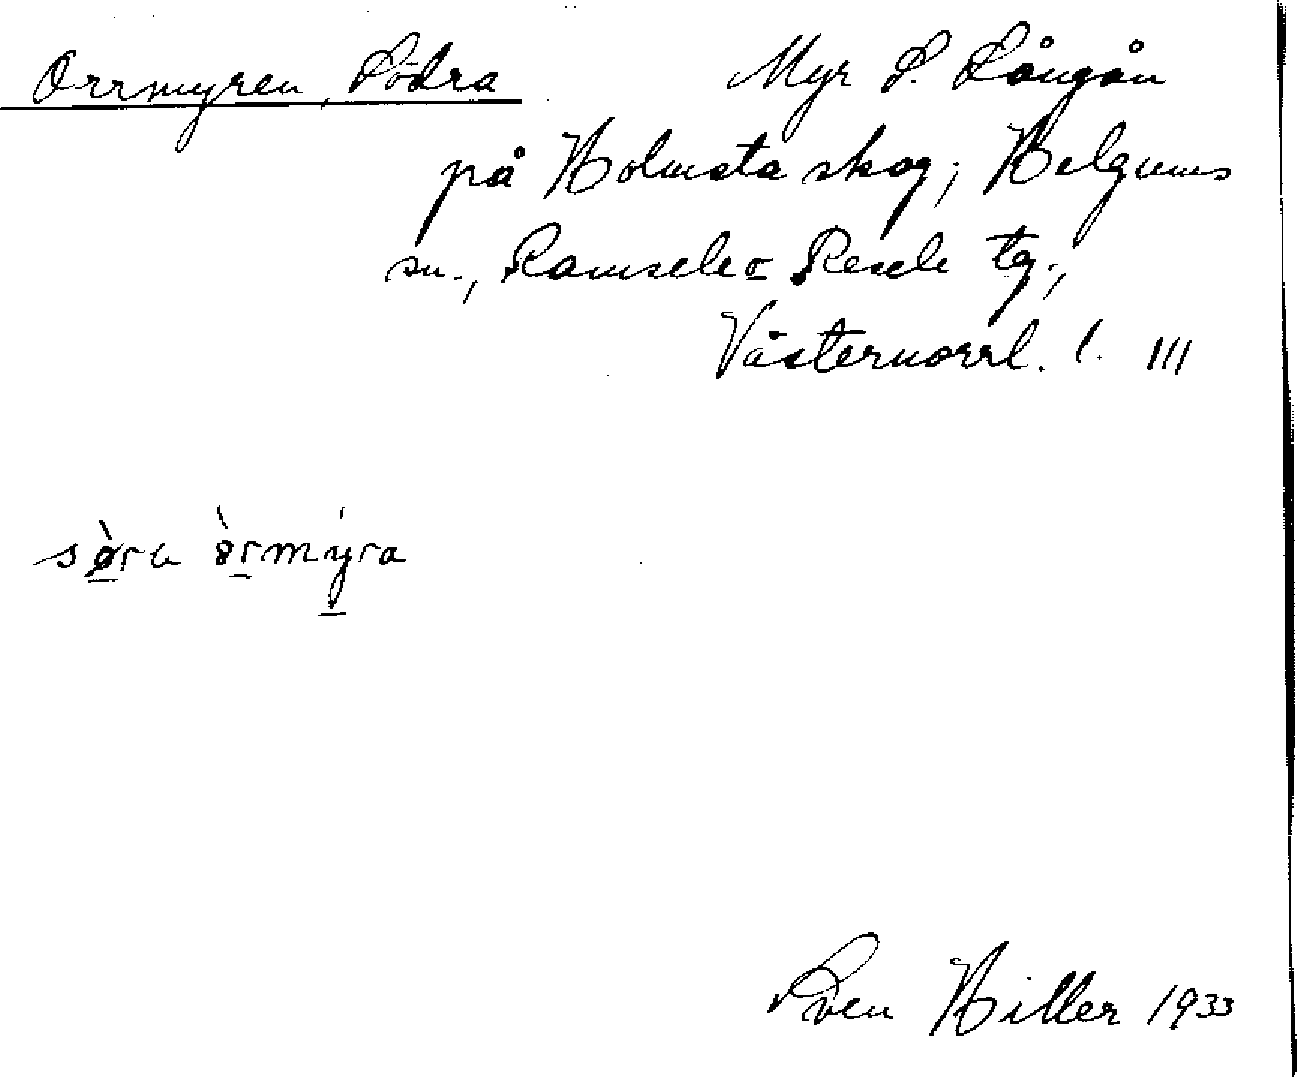 Orrmyren, Södra
Myr S. Långån
på Holmsta skog; Helgums
sn., Ramsele o Resele tg.,
Västernorrl. l. III
sø̀ra òrmýra
Sven Hiller 1933